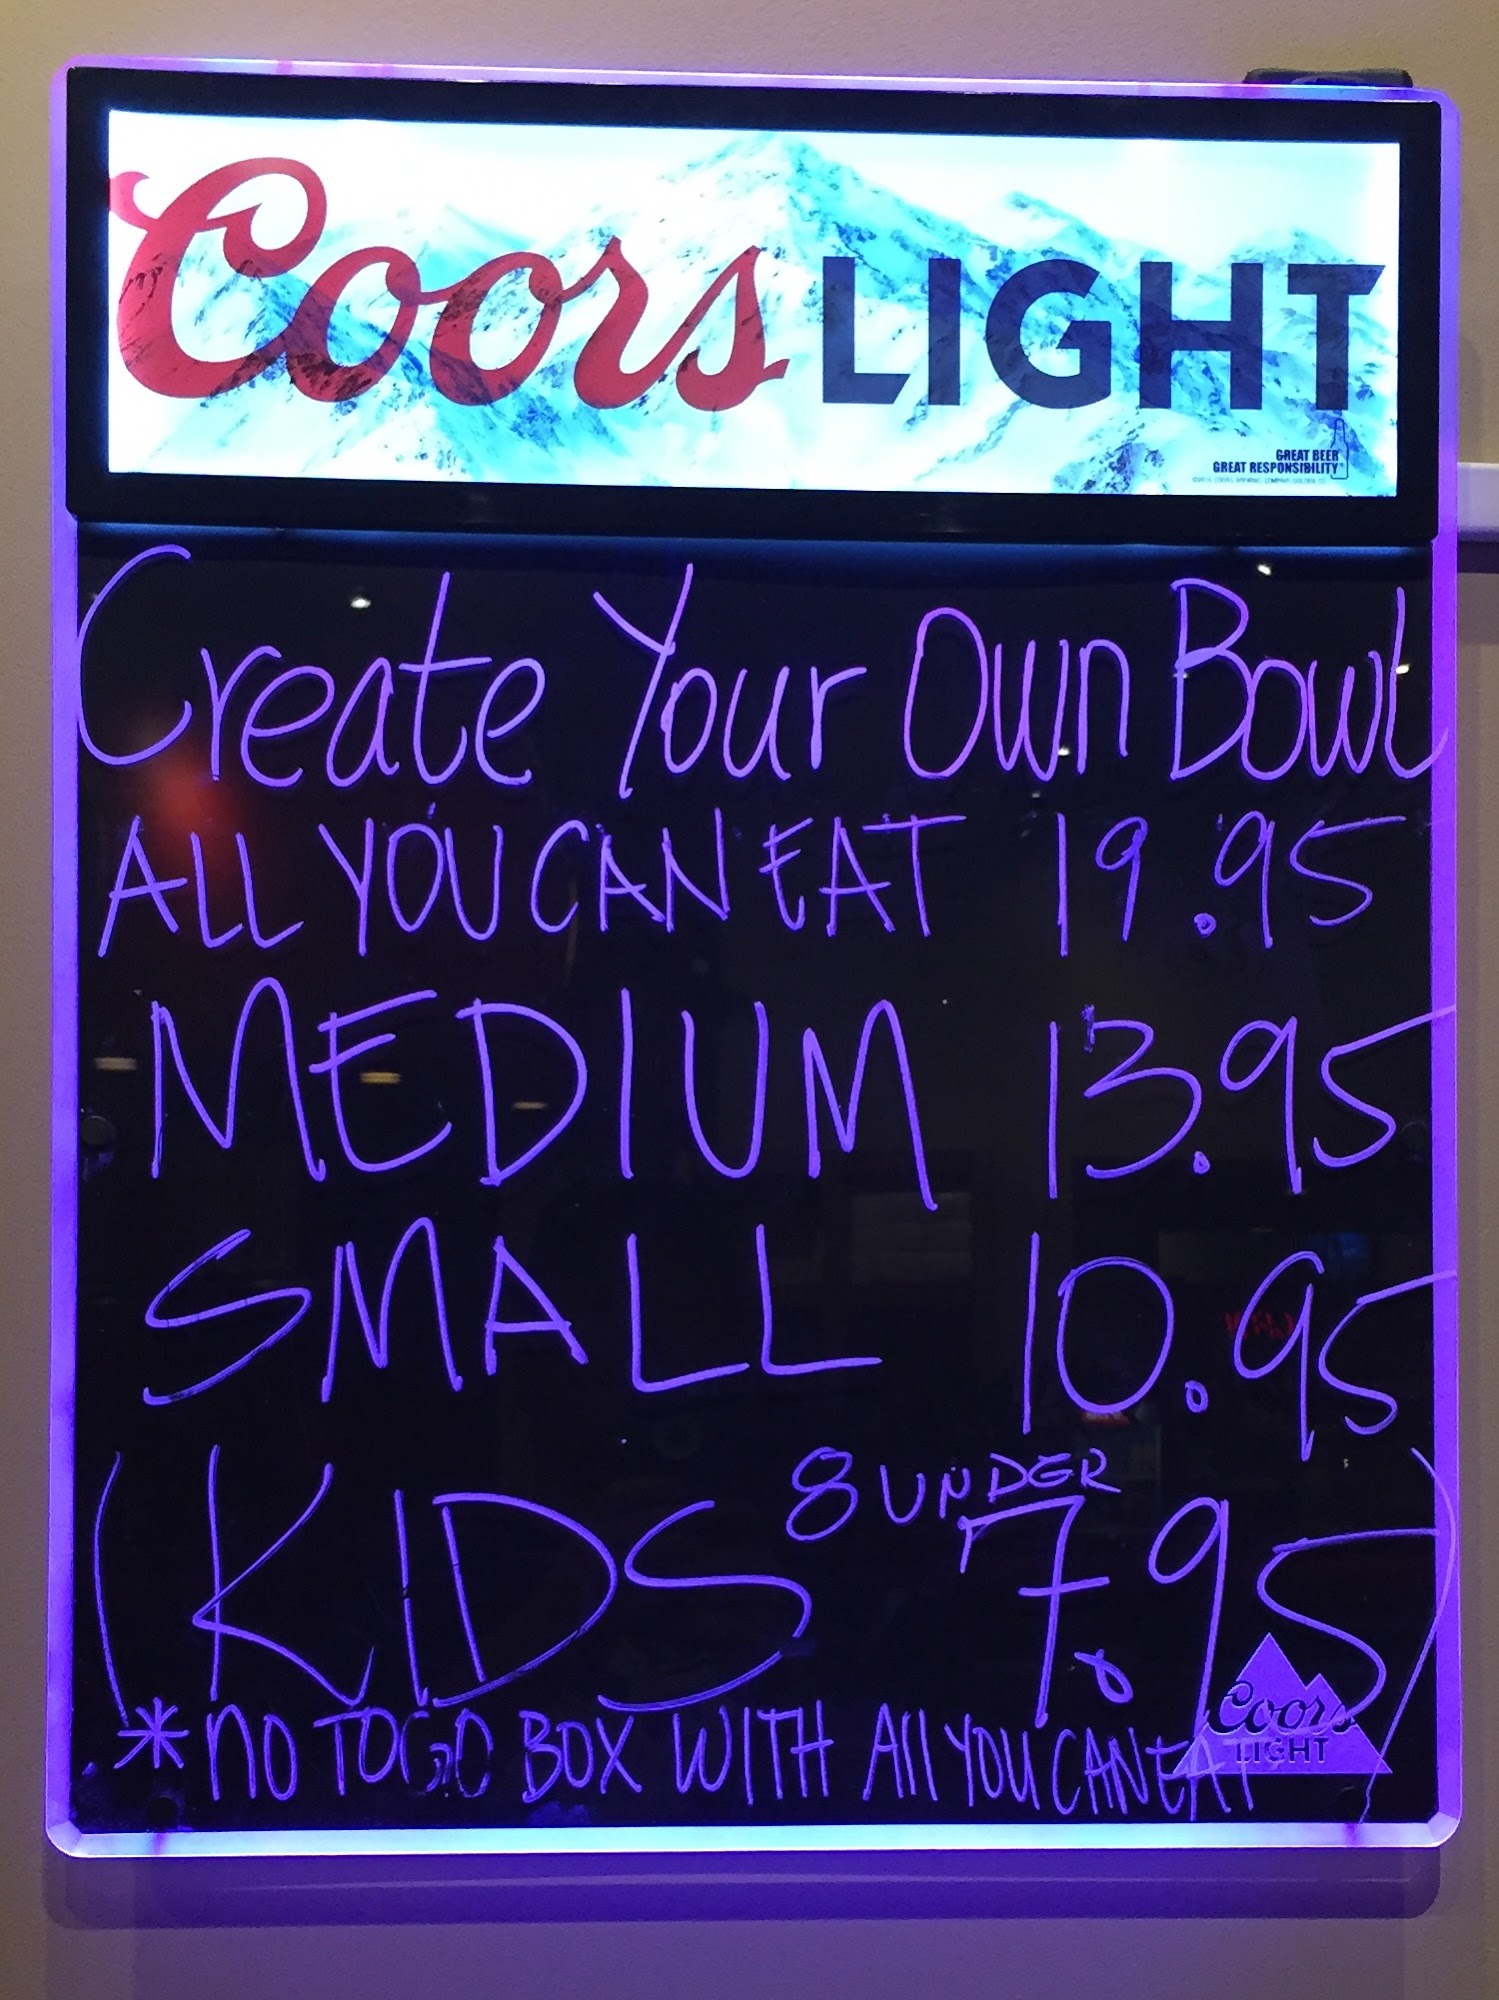 Coors LIGHT
GREAT BEER
GREAT RESPONSIBILITY
Create Your Own Bowl
ALL YOU CAN EAT 19.95
MEDIUM 13.95
SMALL 10.95
(KIDS 8 UNDER 7.95)
*NO TOGO BOX WITH All YOU CAN EAT
Coors
LIGHT